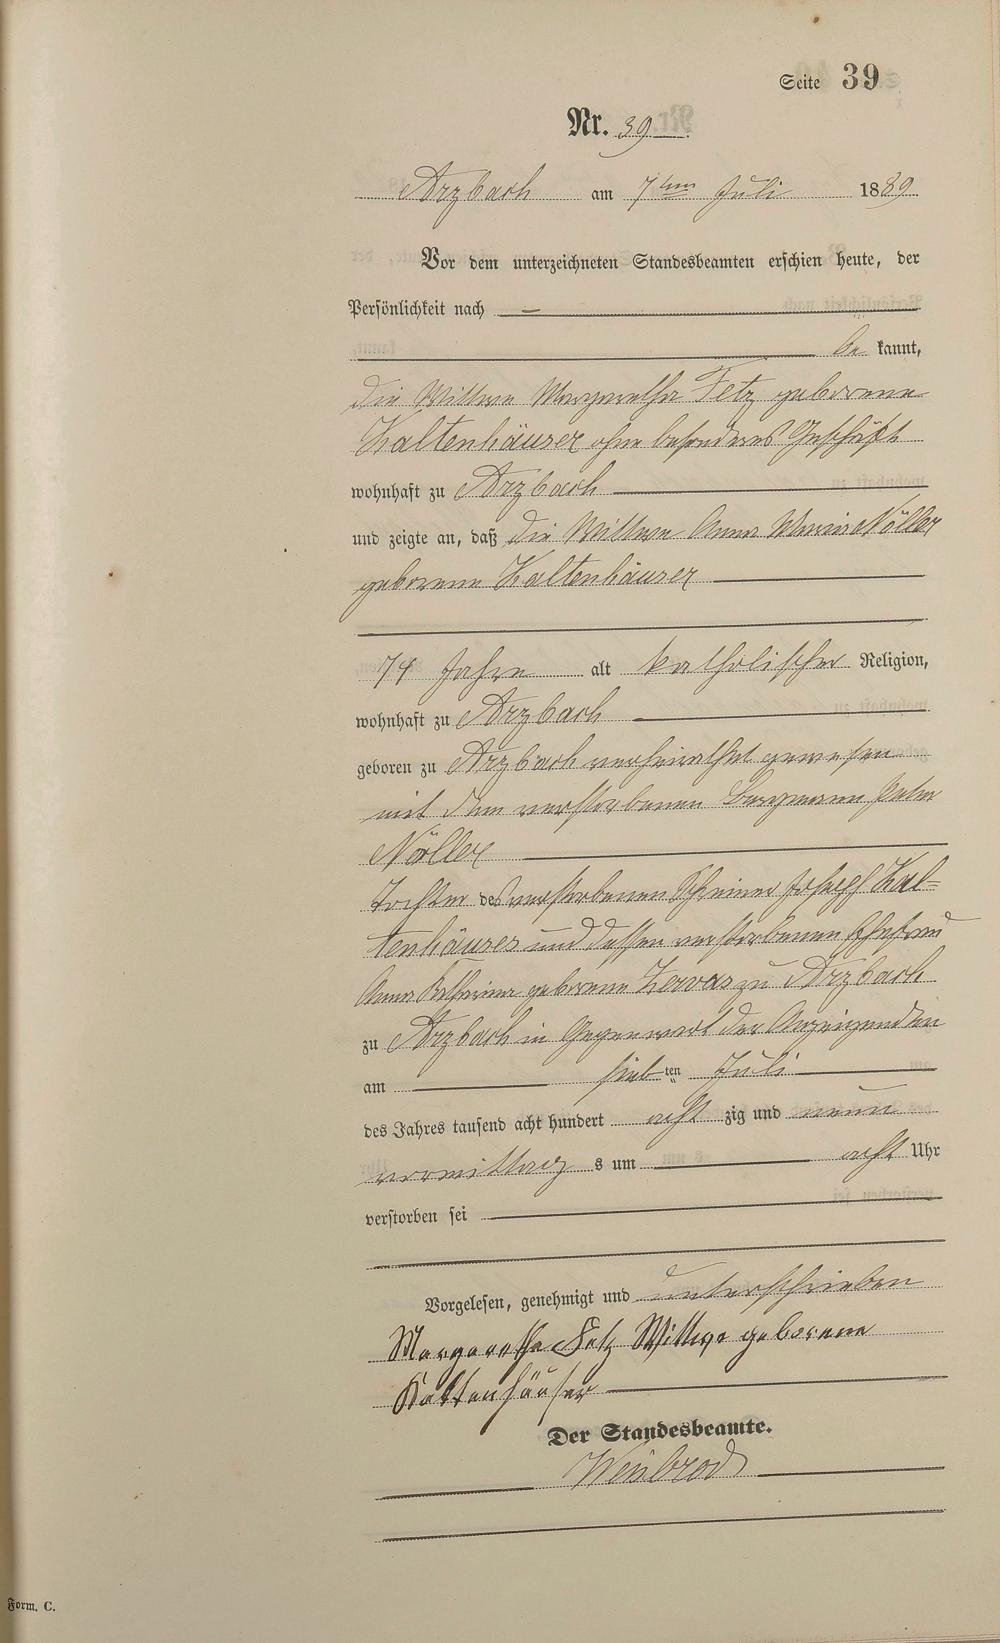 Seite 39
Nr. 39
Arzbach am 7ten Juli 1889
Vor dem unterzeichneten Standesbeamten erschien heute, der
Persönlichkeit nach —
be kannt,
die Wittwe Margaretha Fetz geborene
Kaltenhäuser ohne besonderes Geschäft
wohnhaft zu Arzbach
und zeigte an, daß die Wittwe Anna Maria Nöller
geborene Kaltenhäuser
74 Jahre alt katholischer Religion,
wohnhaft zu Arzbach
geboren zu Arzbach verheirathet gewesen
mit dem verstorbenen Bergmann Peter
Nöller
Tochter des verstorbenen Schreiner Joseph Kal-
tenhäuser und dessen verstorbenen Ehefrau
Anna Katharina geborene Hervas zu Arzbach
zu Arzbach in Gegenwart der Anzeigenden
am sieb ten Juli
des Jahres tausend acht hundert acht zig und neun
vormittag s um acht Uhr
verstorben sei
Vorgelesen, genehmigt und unterschrieben
Margaretha Fetz Wittwe geborene
Kaltenhäuser
Der Standesbeamte.
Weisbrod
Form. C.